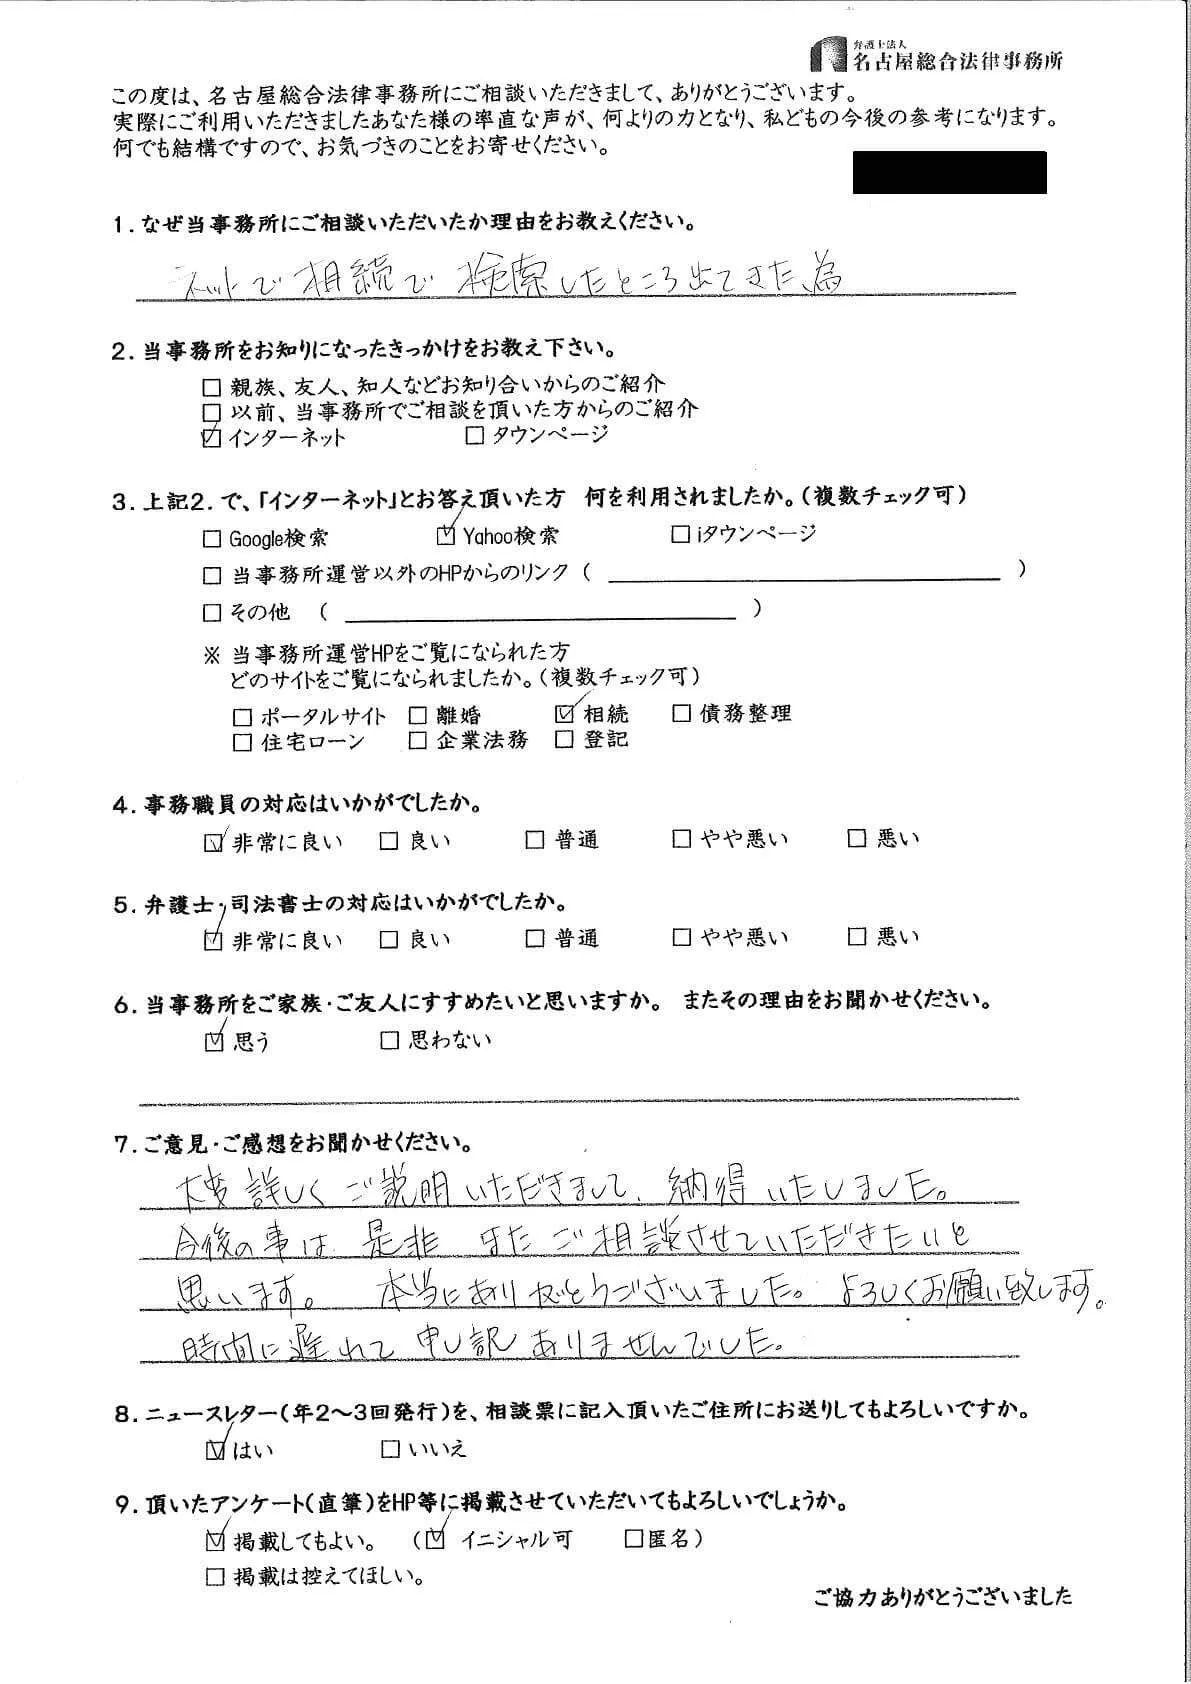 弁護士法人
名古屋総合法律事務所
この度は、名古屋総合法律事務所にご相談いただきまして、ありがとうございます。
実際にご利用いただきましたあなた様の率直な声が、何よりの力となり、私どもの今後の参考になります。
何でも結構ですので、お気づきのことをお寄せください。
1．なぜ当事務所にご相談いただいたか理由をお教えください。
ネットで相続で検索したところ出てきた為
2．当事務所をお知りになったきっかけをお教え下さい。
□ 親族、友人、知人などお知り合いからのご紹介
□ 以前、当事務所でご相談を頂いた方からのご紹介
☑ インターネット □ タウンページ
3．上記2．で、「インターネット」とお答え頂いた方 何を利用されましたか。（複数チェック可）
□ Google検索 ☑ Yahoo検索 □ iタウンページ
□ 当事務所運営以外のHPからのリンク（ ）
□ その他 （ ）
※ 当事務所運営HPをご覧になられた方
どのサイトをご覧になられましたか。（複数チェック可）
□ ポータルサイト □ 離婚 ☑ 相続 □ 債務整理
□ 住宅ローン □ 企業法務 □ 登記
4．事務職員の対応はいかがでしたか。
☑ 非常に良い □ 良い □ 普通 □ やや悪い □ 悪い
5．弁護士・司法書士の対応はいかがでしたか。
☑ 非常に良い □ 良い □ 普通 □ やや悪い □ 悪い
6．当事務所をご家族・ご友人にすすめたいと思いますか。 またその理由をお聞かせください。
☑ 思う □ 思わない
7．ご意見・ご感想をお聞かせください。
大変詳しくご説明いただきまして、納得いたしました。
今後の事は是非またご相談させていただきたいと
思います。 本当にありがとうございました。よろしくお願い致します。
時間に遅れて申し訳ありませんでした。
8．ニュースレター（年2～3回発行）を、相談票に記入頂いたご住所にお送りしてもよろしいですか。
☑ はい □ いいえ
9．頂いたアンケート（直筆）をHP等に掲載させていただいてもよろしいでしょうか。
☑ 掲載してもよい。 （☑ イニシャル可 □匿名）
□ 掲載は控えてほしい。
ご協力ありがとうございました